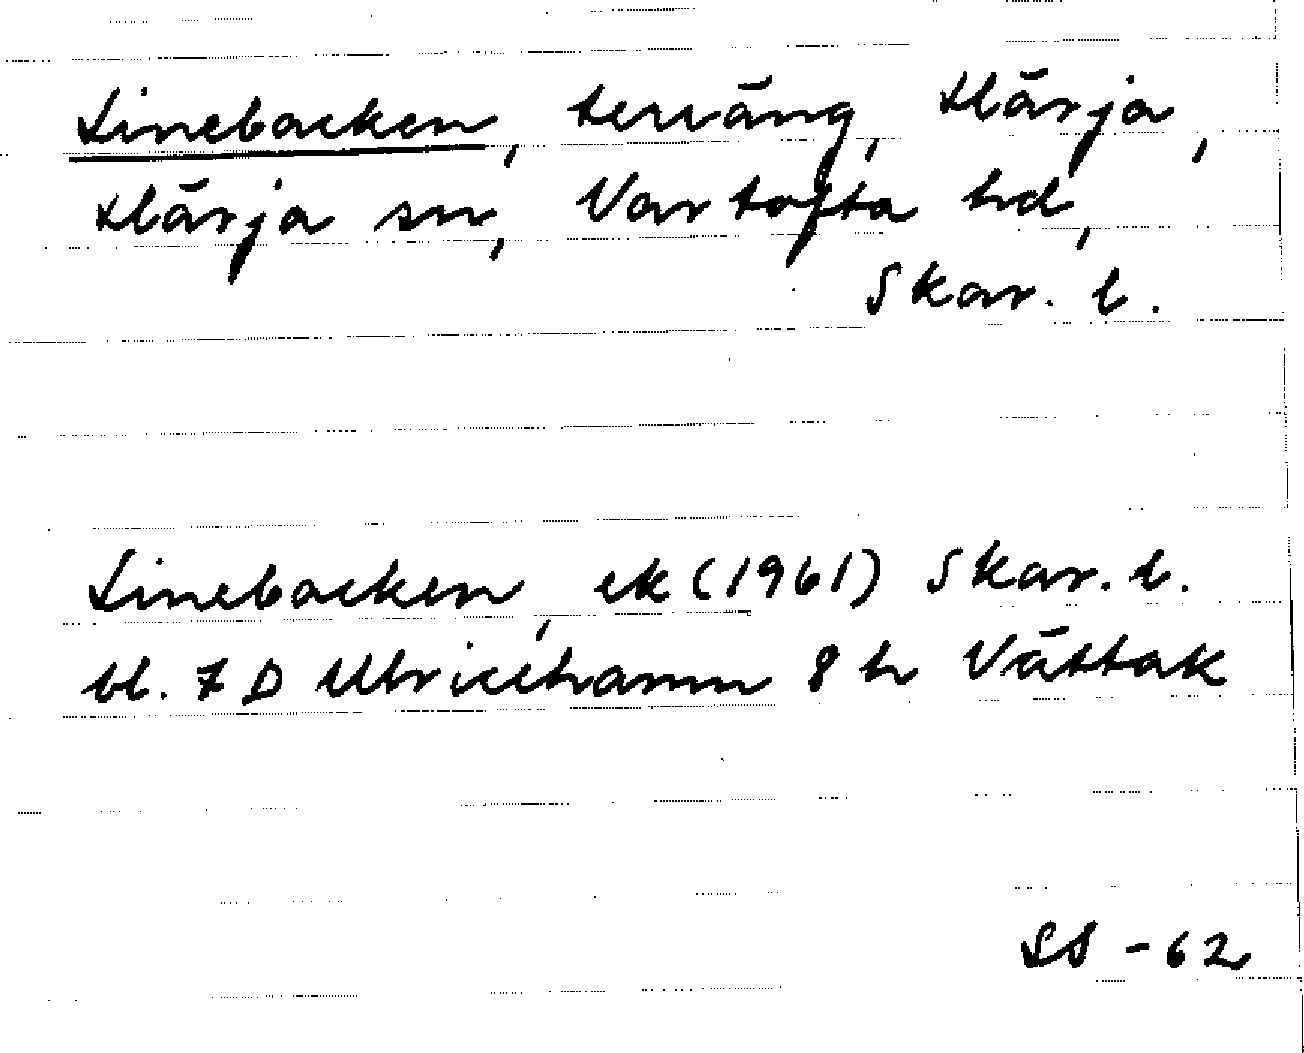 Linebacken, terräng, Härja,
Härja sn, Vartofta hd,
Skar. l.
Linebacken, ek (1961) Skar. l.
bl. 7 D Ulricehamn 8 h Vättak
SS -62